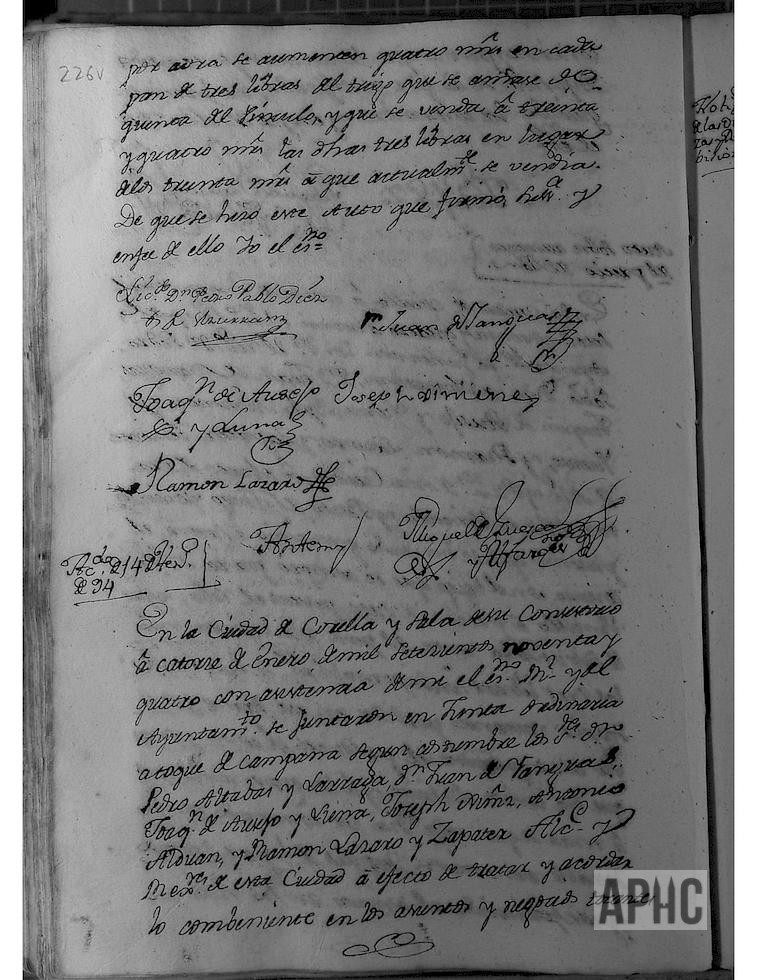 226v
por aora se aumenten quatro mrs en cada
pan de tres libras del trigo que se amase de
quenta del Vinculo, y que se venda â treinta
y quatro mrs las dhas tres libras en lugar
delos treinta mrs â que actualmte se vendia.
De que se hizo este Auto que firmó, su sa y
enfee de ello Yo el esno=
Licdo Dn Pedro Pablo Diez
de Ulzurrun
Juan de Sanguas
Joaqn de Auso
y Luna
Joseph Ximenez
Ramon Lazaro
Antemi
Miguel de
y Alfaro
Acdo. de 14 de Hen.o
de 94
En la Ciudad de Corella y Sala desu Consistorio
â catorce de Enero de mil setecientos noventa y
quatro con asistencia de mi el esno Rl y del
Ayuntamto se Juntaron en Junta ordinaria
atoque de campana segun costumbre los Sres Dn
Pedro Altabas y Larraga, Dn Juan de Sanguas,
Joaqn de Auso y Luna, Joseph Ximz, Antonio
Alduan, y Ramon Lazaro y Zapater Alce y
Rexres de esta Ciudad â efecto de tratar y acordar
lo combeniente en los asuntos y negocios
APHC